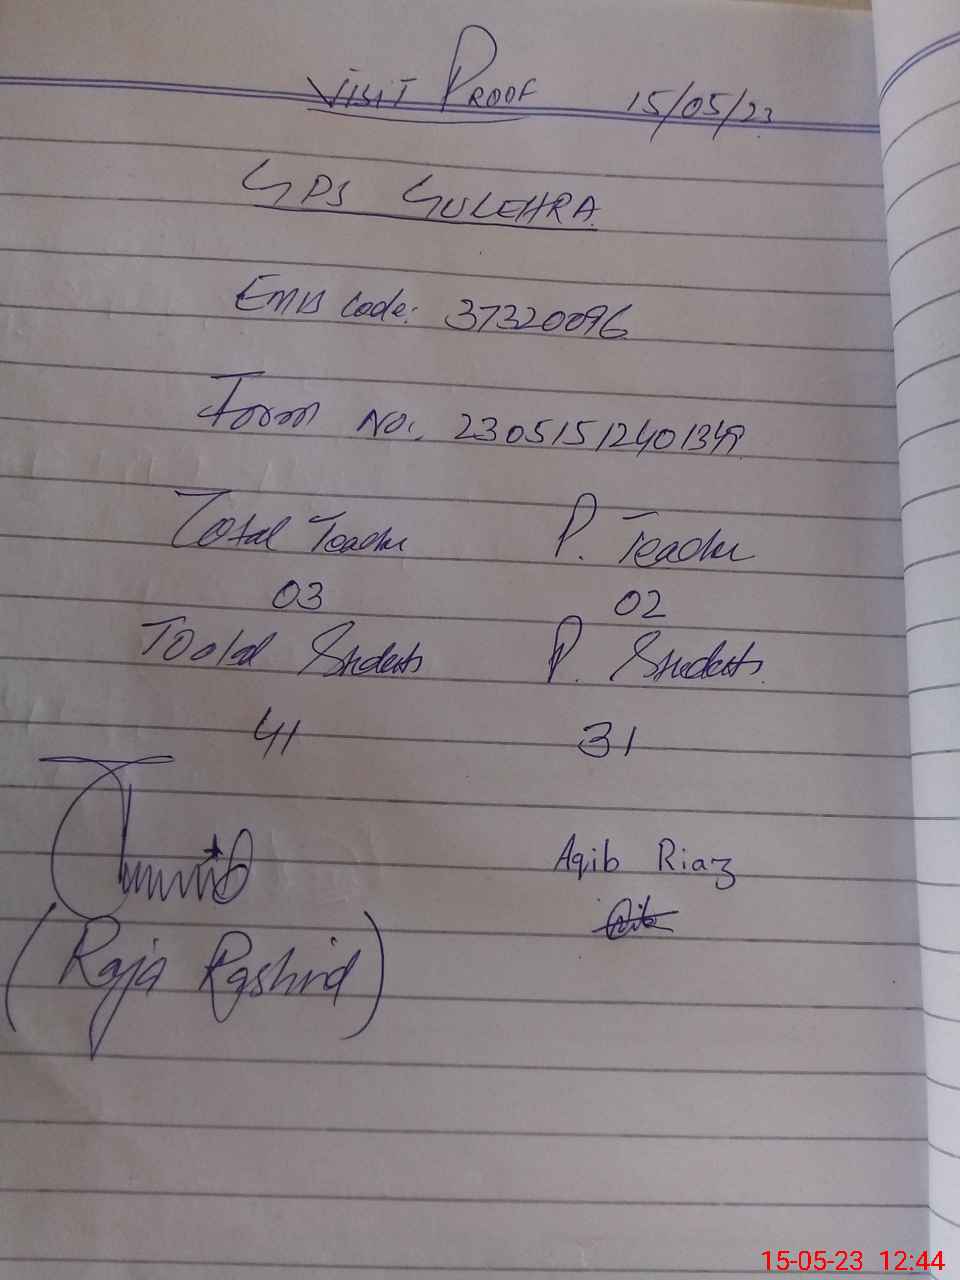 VISIT PROOF 15/05/23
GPS GULEHRA
EMIS Code: 37320096
Form No. 23051512401349
Total Teacher P. Teacher
03 02
Tootal Students P. Students
41 31
Aqib Riaz
(Raja Rashid)
15-05-23 12:44